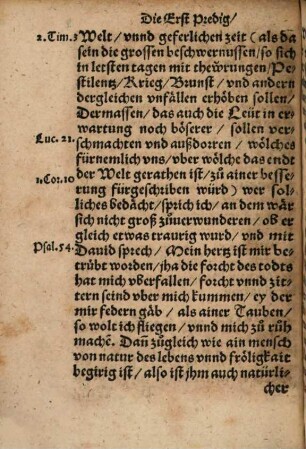 Die Erst Predig/
2. Tim. 3 Welt/ vnnd geferlichen zeit (als da
sein die grossen beschwernussen/ so sich
in letsten tagen mit thewrungen/ Pe-
stilentz/ Krieg/ Brunst/ vnd andern
dergleichen vnfällen erhöben sollen/
Dermassen/ das auch die Leüt in er-
wartung noch böserer/ sollen ver-
Luc. 21. schmachten vnd außdorren/ wölches
fürnemlich vns/ vber wölche das endt
1. Cor. 10 der Welt gerathen ist/ zu ainer besse-
rung fürgeschriben würd) wer sol-
liches bedächt/ sprich ich/ an dem wär
sich nicht groß zuuerwunderen/ ob er
gleich etwas traurig wurd/ vnd mit
Psal. 54. Dauid sprech/ Mein hertz ist mir be-
trübt worden/ jha die forcht des todts
hat mich vberfallen/ forcht vnnd zit-
tern seind vber mich kummen/ ey der
mir federn gäb/ als ainer Tauben/
so wolt ich fliegen/ vnnd mich zu rüh
machē. Dañ zugleich wie ain mensch
von natur des lebens vnnd fröligkait
begirig ist/ also ist jhm auch natürli-
cher